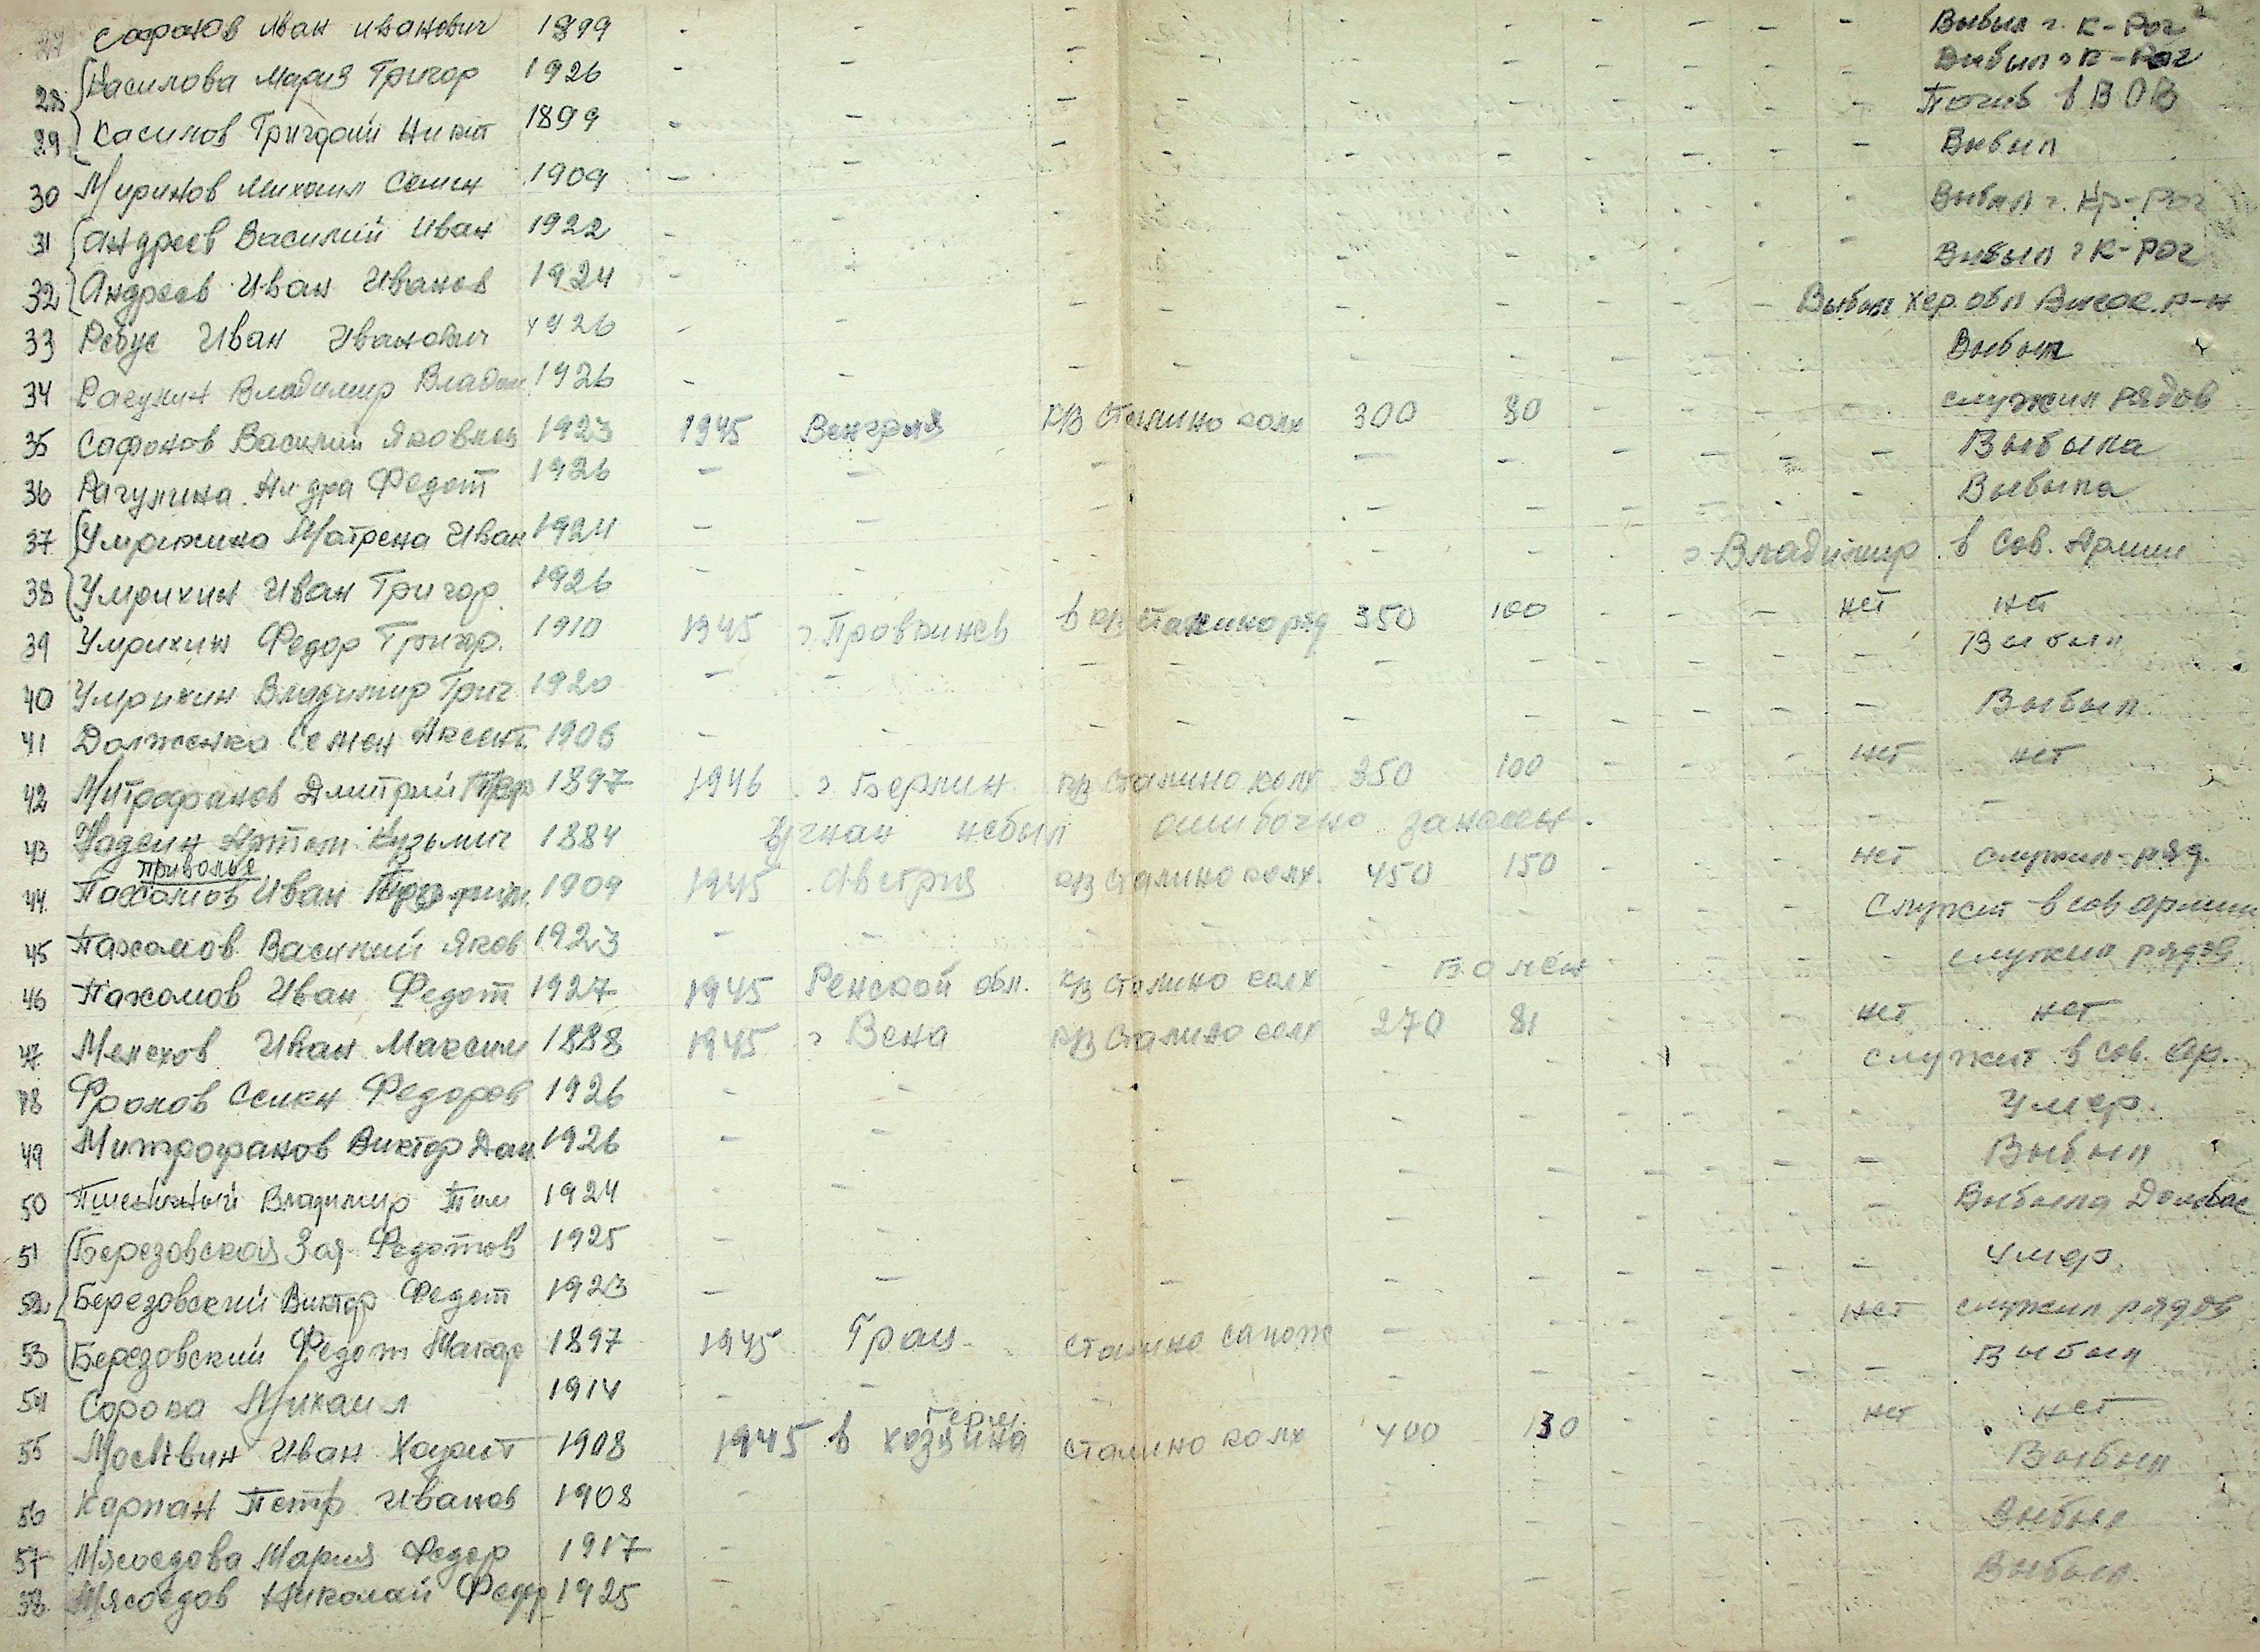 27 Сафонов Иван Иванович 1899 - - - - - - Выбыл г. К-Рог
28 Касилова Мария Григор 1926 - - - - - - Выбыл г К-Рог
29 Касилов Григорий Никит 1899 - - - - - - Погиб в ВОВ
30 Миринов Михаил Семен 1909 - - - - - - Выбыл
31 Андреев Василий Иван 1922 - - - - - - Выбыл г. Кр-Рог
32 Андреев Иван Иванов 1924 - - - - - - Выбыл г К-Рог
33 Ребус Иван Иванович 1926 - - - - - - Выбыл Хер. обл Высок. р-н
34 Рагулин Владимир Владим 1926 - - - - - - Выбыл
35 Сафонов Василий Яковлев 1923 1945 Венгрия р/в Сталино колх 300 80 - - - - служил рядов
36 Рагулина Федот 1926 - - - - - - Выбыла
37 Умрихина Матрена Иван 1924 - - - - - - Выбыла
38 Умрихин Иван Григор. 1926 - - - - - г. Владимир в Сов. Армии
39 Умрихин Федор Григор. 1910 1945 г. в р/в Сталино 350 100 - - - нет нет
40 Умрихин Владимир Григ 1920 - - - - - - Выбыл
41 Долженко Семен Аксент. 1906 - - - - - - Выбыл
42 Митрофанов Дмитрий 1897 1946 г. Берлин р/в Сталино колх 350 100 - - - нет нет
43 Надеин Артем Кузьмич 1884 Угнан небыл ошибочно занесен. - -
Приволье
44 Пахомов Иван 1909 1945 Австрия р/в Сталино колх. 450 150 - - - нет служил ряд.
45 Пахомов Василий Яков 1923 - - - - - - Служит в сов армии
46 Пахомов Иван Федот 1927 1945 Ренской обл. р/в Сталино колх - - - служил рядов
47 Мелехов Иван Максим 1888 1945 г Вена р/в Сталино колх 270 81 - - - нет нет
48 Фролов Семен Федоров 1926 - - - - - - служит в сов. Ар.
49 Митрофанов Виктор Дан 1926 - - - - - - Умер.
50 Пшеничный Владимир Тим 1924 - - - - - - Выбыл
51 Березовская Зоя Федотов 1925 - - - - - - Выбыла Донбас
52 Березовский Виктор Федот 1923 - - - - - - Умер.
53 Березовский Федот Макар 1897 1945 Грац Сталино сапож - - - нет служил рядов
54 Сорока Михаил 1914 - - - - - - Выбыл
Герм.
55 Москвин Иван Харит 1908 1945 в хозяина Сталино колх 400 130 - - - нет нет
56 Карпан Петр Иванов 1908 - - - - - - Выбыл
57 Мясоедова Мария Федор 1917 - - - - - - Выбыл
58 Мясоедов Николай Федор 1925 - - - - - - Выбыл.